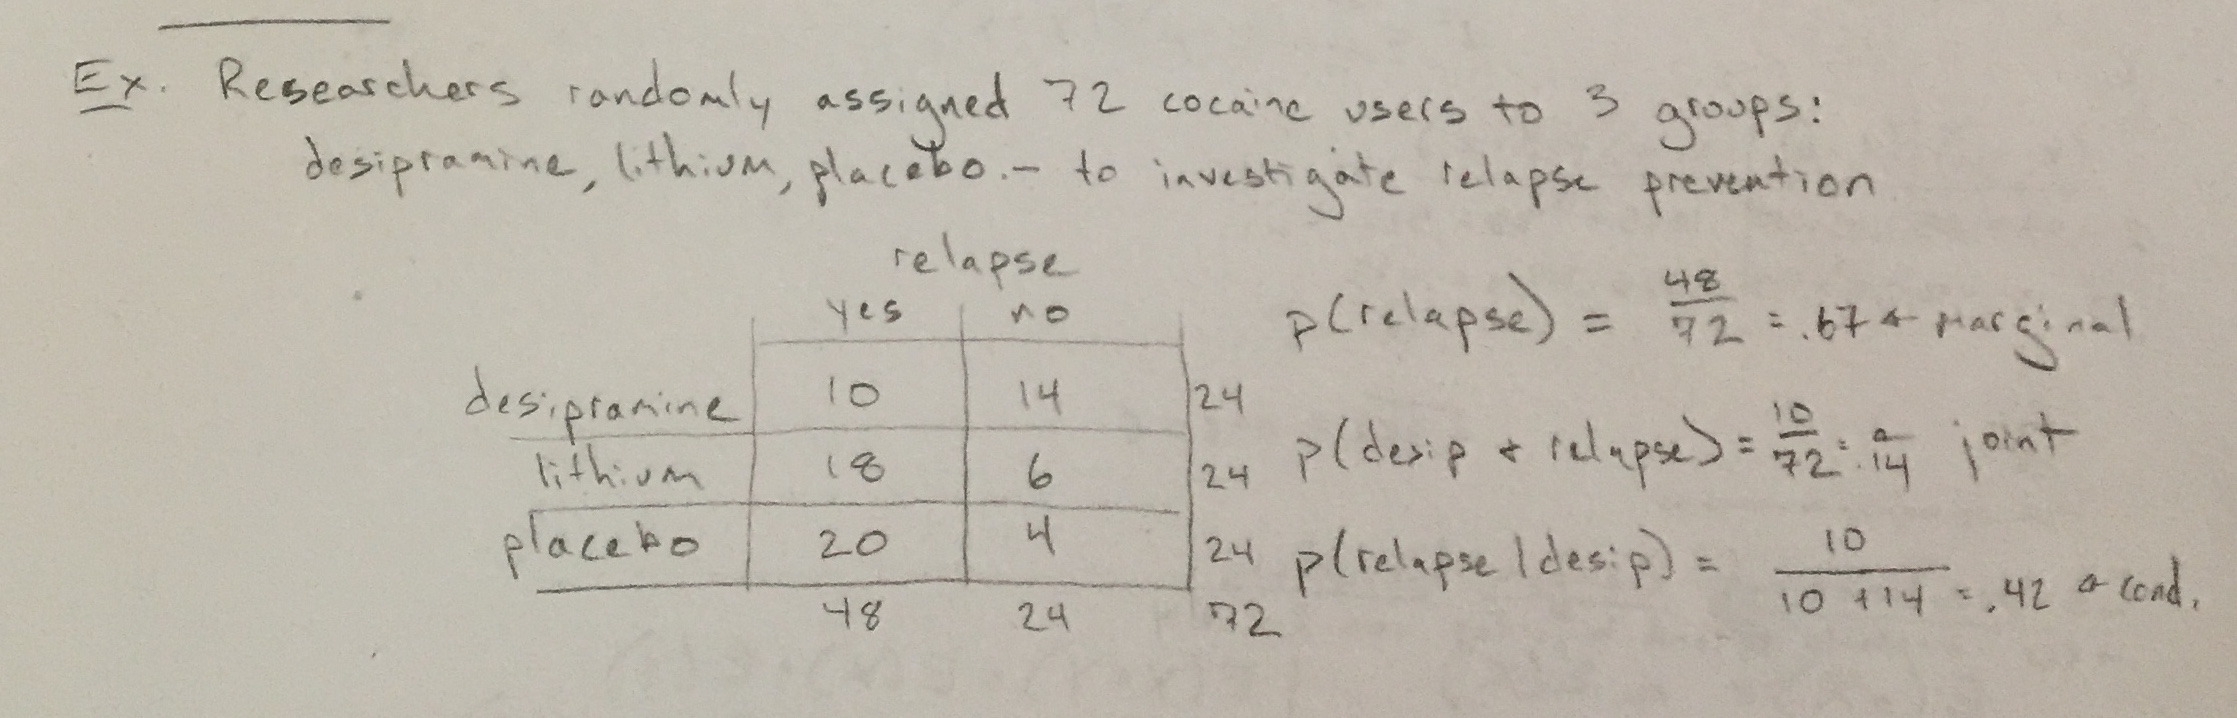 Ex. Researchers randomly assigned 72 cocaine users to 3 groups:
desipramine, lithium, placebo. - to investigate relapse prevention
relapse
yes no
desipramine 10 14 24
lithium 18 6 24
placebo 20 4 24
48 24 72
p(relapse) = 48/72 = .67 ← marginal
p(desip + relapse) = 10/72 = .14 ← joint
p(relapse | desip) = 10/10+14 = .42 ← cond.